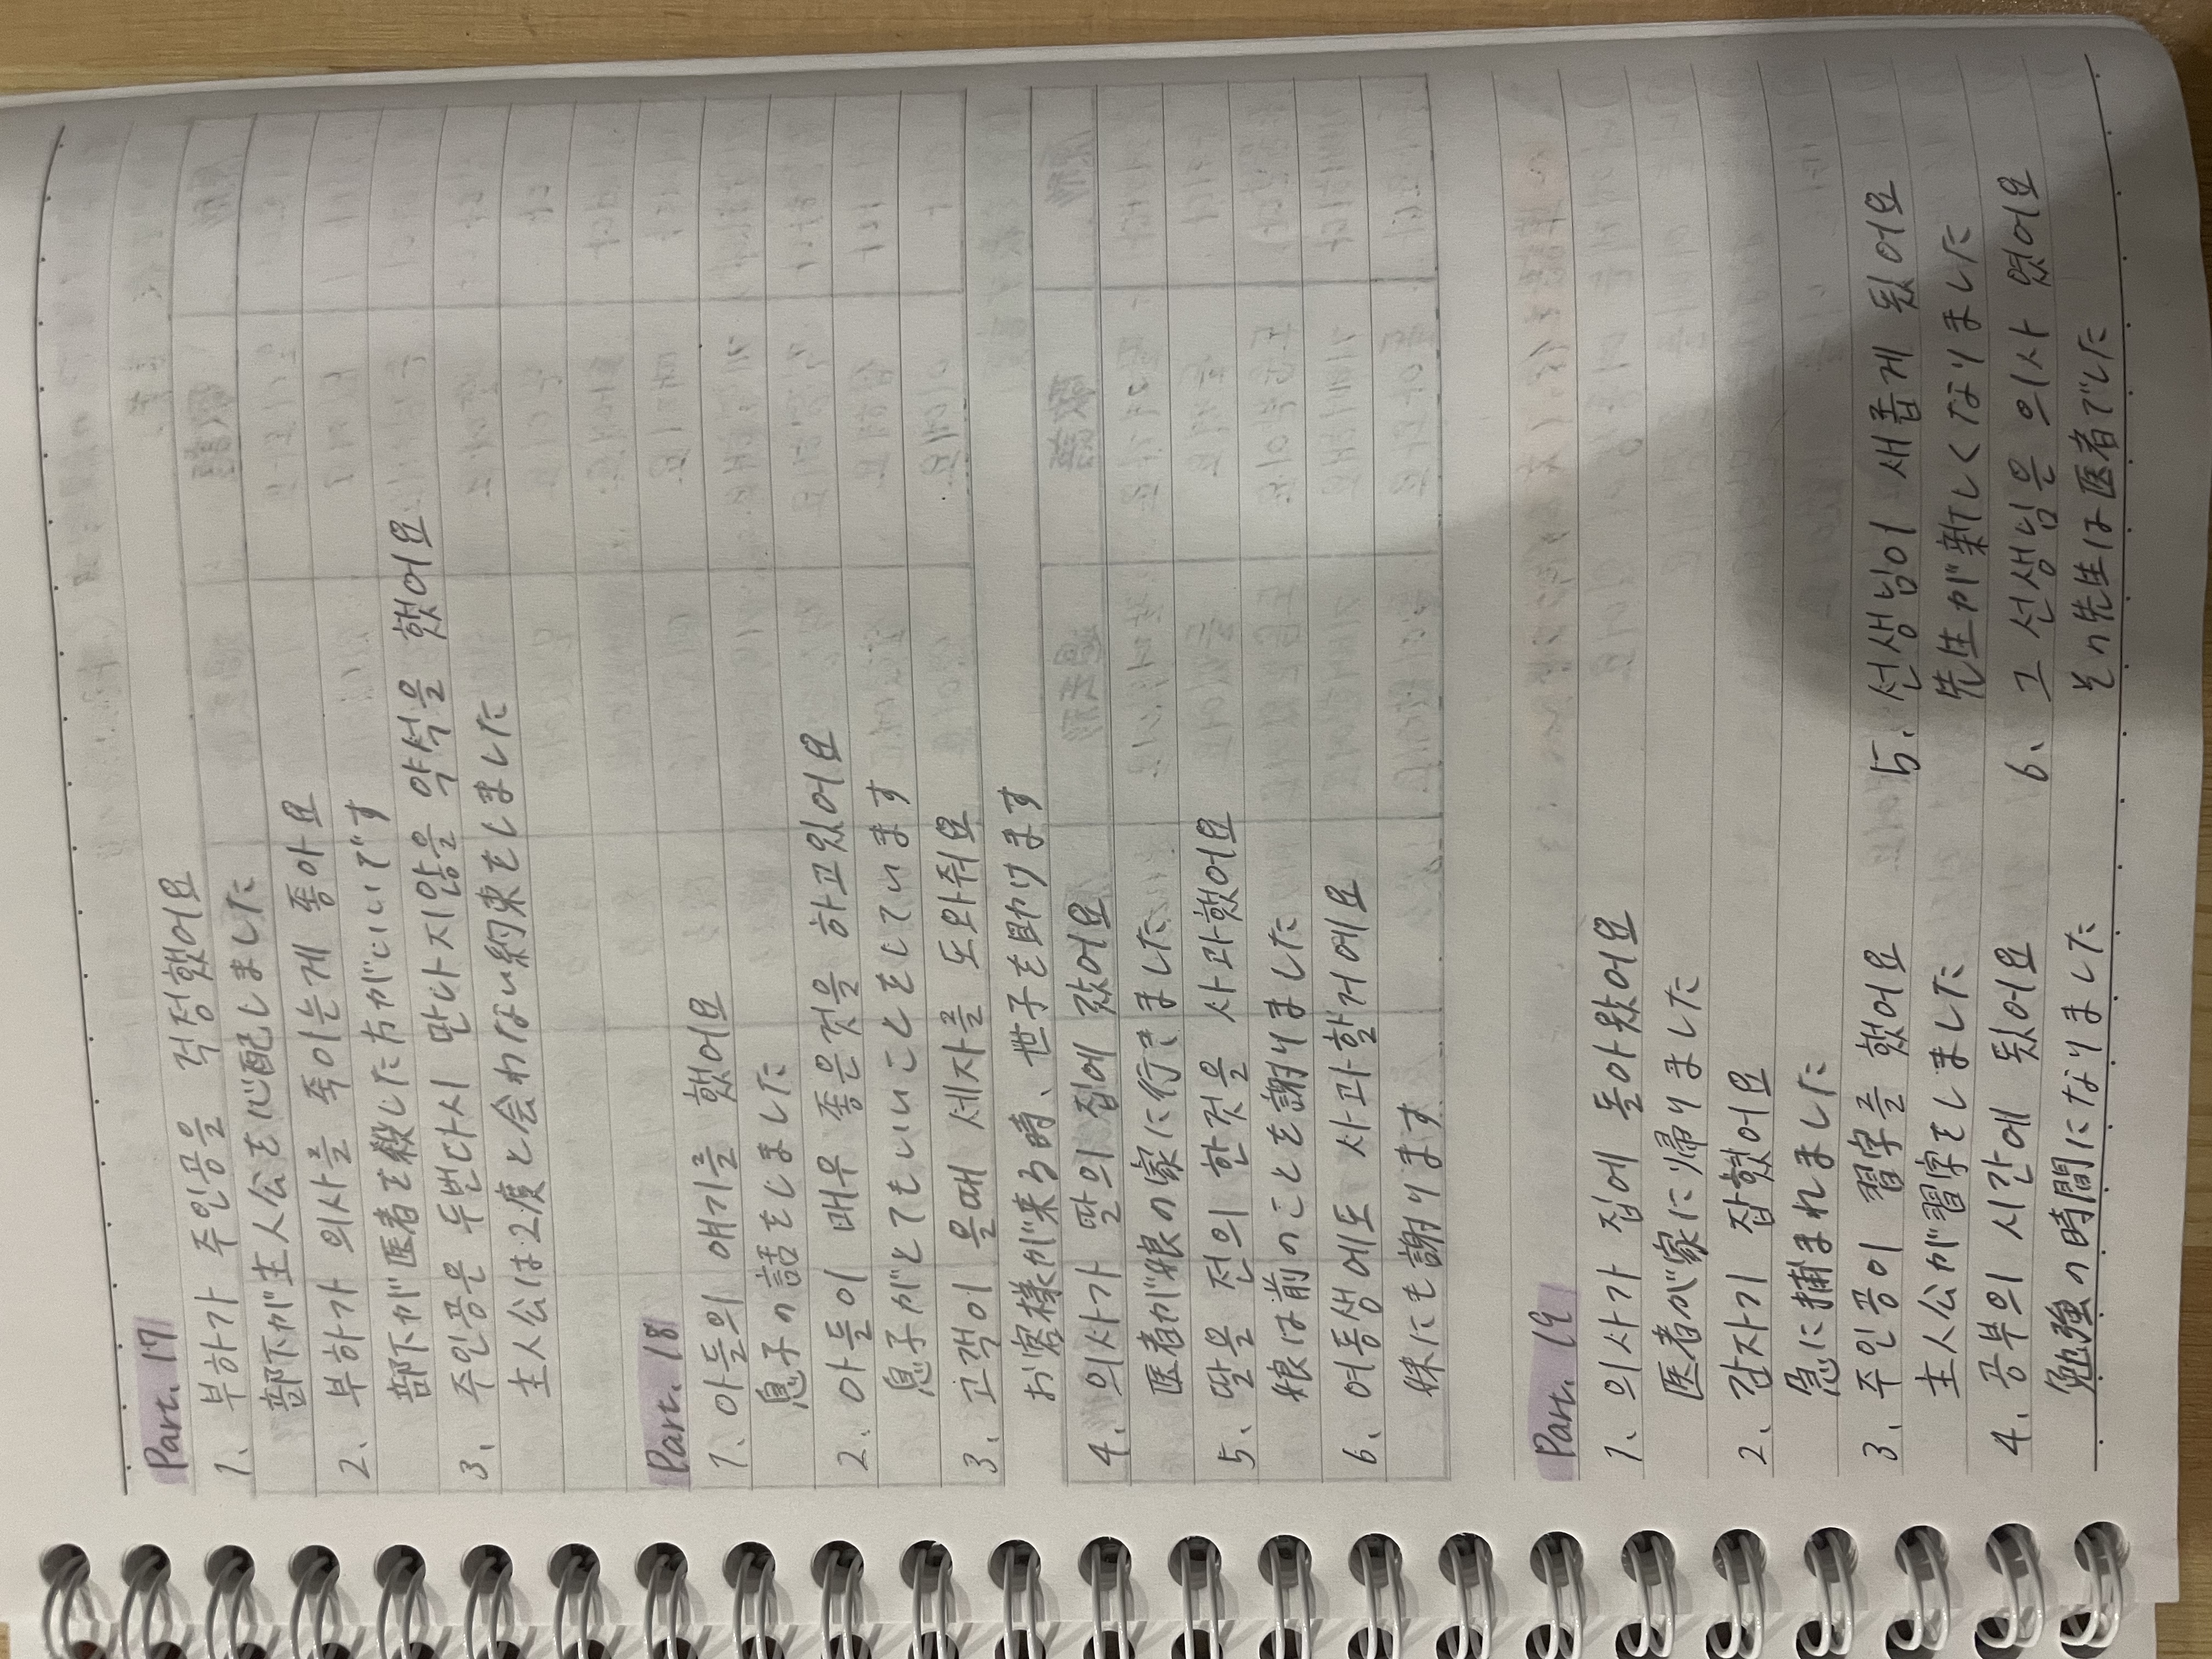 Part. 17
1、부하가 주인공을 걱정했어요
部下が主人公を心配しました
2. 부하가 의사를 죽이는게 좋아요
部下が医者を殺した方がいいです
3、주인공은 두번다시 만나지않을 약석을 했어요
主人公は2度と会わない約束をしました
Part. 18
1、아들의 얘기를 했어요
息子の話をしました
2. 아들이 매우 좋은것을 하고있어요
息子がとてもいいことをしています
3、고객이 올때 세자를 도와줘요
お客様が来る時、世子を助けます
4. 의사가 딸의 집에 갔어요
医者が娘の家に行きました
5、딸은 전의 한것을 사과했어요
娘は前のことを謝りました
6、여동생에도 사과할거에요
妹にも謝ります
Part. 19
1、의사가 집에 돌아왔어요
医者が家に帰りました
2、갑자기 잡혔어요
急に捕まれました
3、주인공이 習字를 했어요
主人公が習字をしました
4. 공부의 시간에 됬어요
勉強の時間になりました
5、선생님이 새롭게 됬어요
先生が新しくなりました
6、그 선생님은 의사 였어요
その先生は医者でした